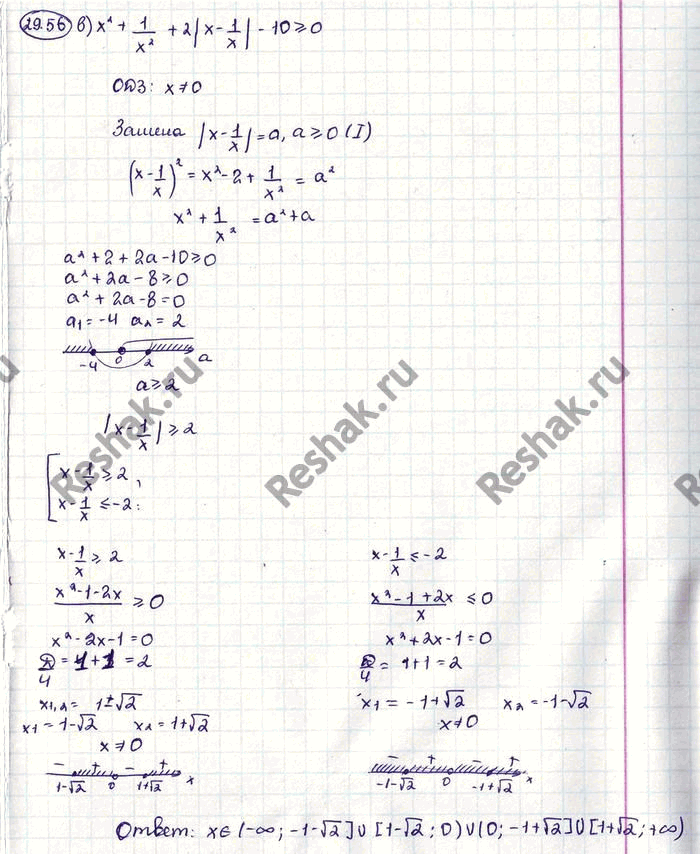 29.56 в) x² + 1/x² + 2|x - 1/x| - 10 ≥ 0
ОДЗ: x ≠ 0
Замена |x - 1/x| = a, a ≥ 0 (I)
(x - 1/x)² = x² - 2 + 1/x² = a²
x² + 1/x² = a² + a
a² + 2 + 2a - 10 ≥ 0
a² + 2a - 8 ≥ 0
a² + 2a - 8 = 0
a₁ = -4 a₂ = 2
-4 0 2 a
a ≥ 2
|x - 1/x| ≥ 2
[ x - 1/x ≥ 2,
x - 1/x ≤ -2:
x - 1/x ≥ 2
(x² - 1 - 2x)/x ≥ 0
x² - 2x - 1 = 0
D/4 = 1 + 1 = 2
x₁,₂ = 1 ± √2
x₁ = 1 - √2 x₂ = 1 + √2
x ≠ 0
- + - +
1-√2 0 1+√2 x
x - 1/x ≤ -2
(x² - 1 + 2x)/x ≤ 0
x² + 2x - 1 = 0
D/4 = 1 + 1 = 2
x₁ = -1 + √2 x₂ = -1 - √2
x ≠ 0
- + - +
-1-√2 0 -1+√2 x
Ответ: x ∈ (-∞; -1-√2] ∪ [1-√2; 0) ∪ (0; -1+√2] ∪ [1+√2; +∞)
Reshak.ru
Reshak.ru
Reshak.ru